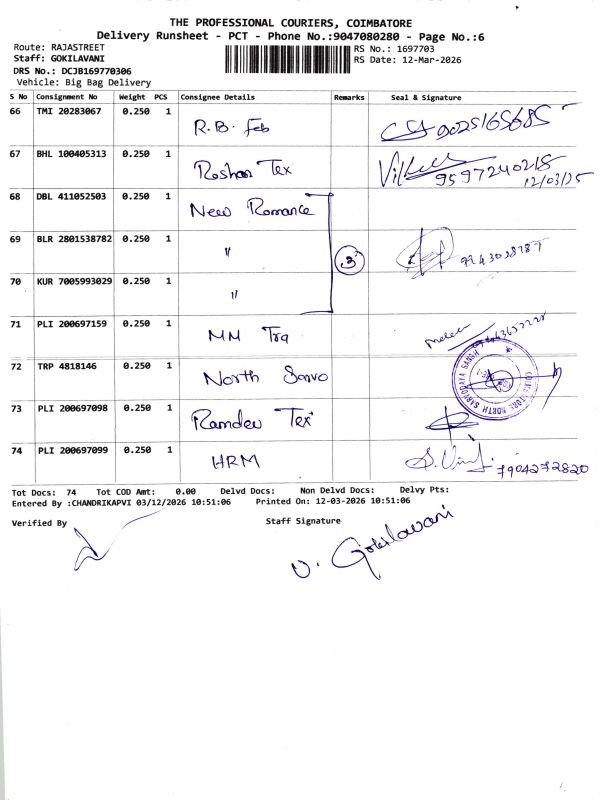 THE PROFESSIONAL COURIERS, COIMBATORE
Delivery Runsheet - PCT - Phone No.:9047080280 - Page No.:6
Route: RAJASTREET
RS No.: 1697703
Staff: GOKILAVANI
RS Date: 12-Mar-2026
DRS No.: DCJB169770306
Vehicle: Big Bag Delivery
S No Consignment No Weight PCS Consignee Details Remarks Seal & Signature
66 TMI 20283067 0.250 1 R.B. Feb
67 BHL 100405313 0.250 1 Roshan Tex 9597240218
12/03/25
68 DBL 411052503 0.250 1 New Romance
69 BLR 2801538782 0.250 1 " 3
70 KUR 7005993029 0.250 1 "
71 PLI 200697159 0.250 1 MM Tra
72 TRP 4818146 0.250 1 North Sarvo
73 PLI 200697098 0.250 1 Ramdev Tex
74 PLI 200697099 0.250 1 HRM 7904272820
Tot Docs: 74 Tot COD Amt: 0.00 Delvd Docs: Non Delvd Docs: Delvy Pts:
Entered By :CHANDRIKAPVI 03/12/2026 10:51:06 Printed On: 12-03-2026 10:51:06
Verified By Staff Signature
V. Gokilavani